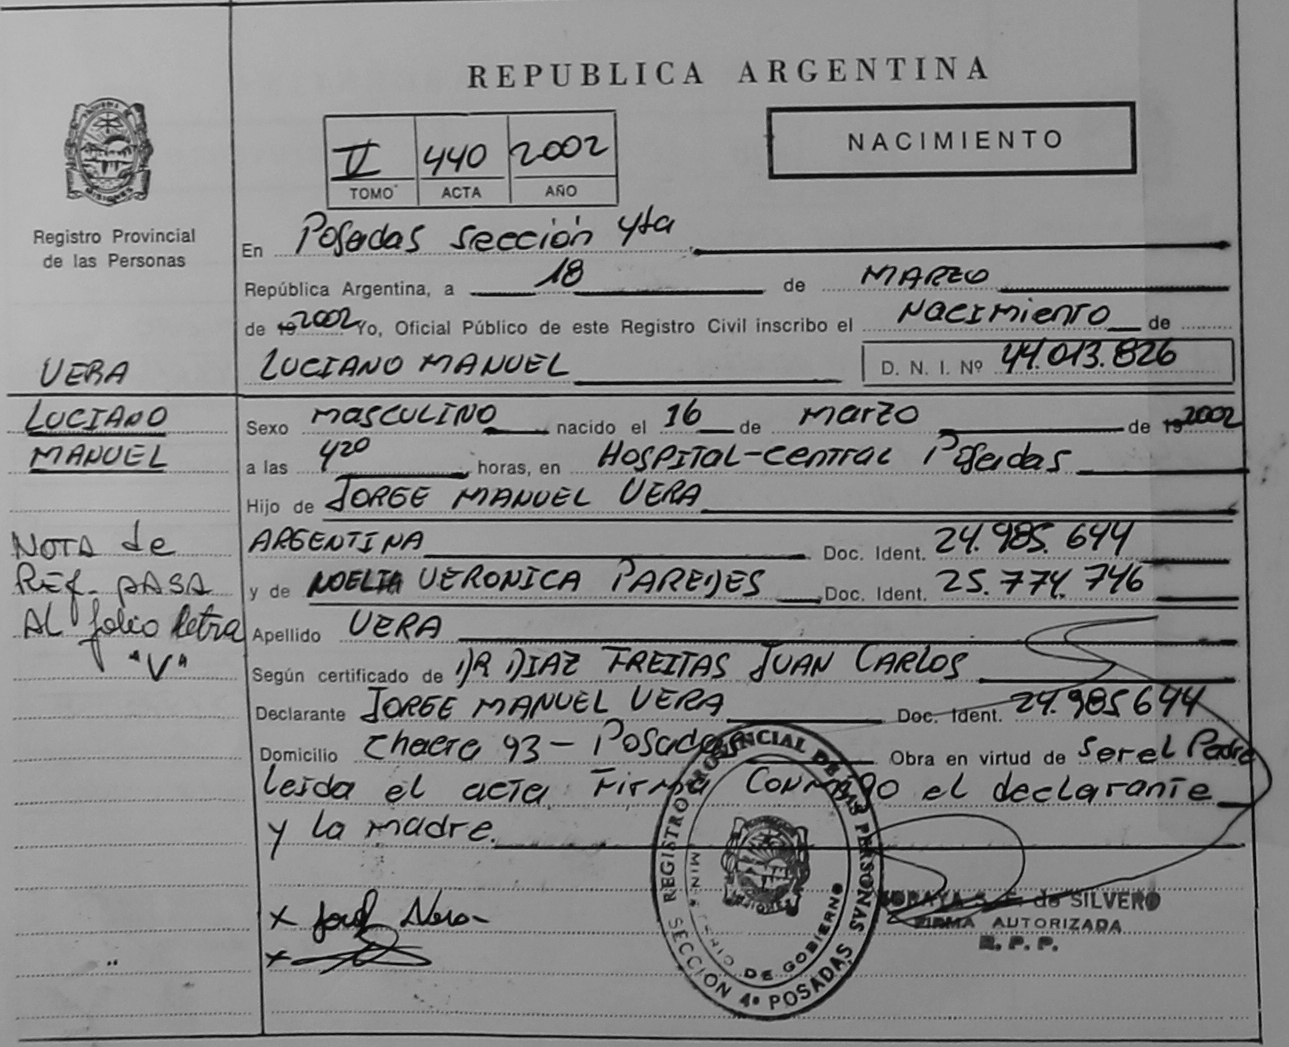 REPUBLICA ARGENTINA
NACIMIENTO
V 440 2002
TOMO ACTA AÑO
Registro Provincial
de las Personas
En Posadas sección 4ta
República Argentina, a 18 de MARZO
de 2002 Yo, Oficial Público de este Registro Civil inscribo el Nacimiento de
VERA
LUCIANO MANUEL D. N. I. Nº 44.013.826
LUCIANO
MANUEL
Sexo MASCULINO nacido el 16 de marzo de 2002
a las 420 horas, en HOSPITAL-CENTRAL Posadas
Hijo de JORGE MANUEL VERA
ARGENTINA Doc. Ident. 24.985.644
y de NOELIA VERONICA PAREDES Doc. Ident. 25.774.746
NOTA de
REf. pASA
AL folio letra
"V"
Apellido VERA
Según certificado de DR DIAZ FREITAS JUAN CARLOS
Declarante JORGE MANUEL VERA Doc. Ident. 24.985644
Domicilio Chacra 93 - Posadas Obra en virtud de ser el Padre
leida el acta, Firma Conmigo el declarante
y la madre.
REGISTRO PROVINCIAL DE LAS PERSONAS
MINISTERIO DE GOBIERNO
SECCIÓN 4ª POSADAS
de SILVERO
FIRMA AUTORIZADA
R. P. P.
x Vera
x